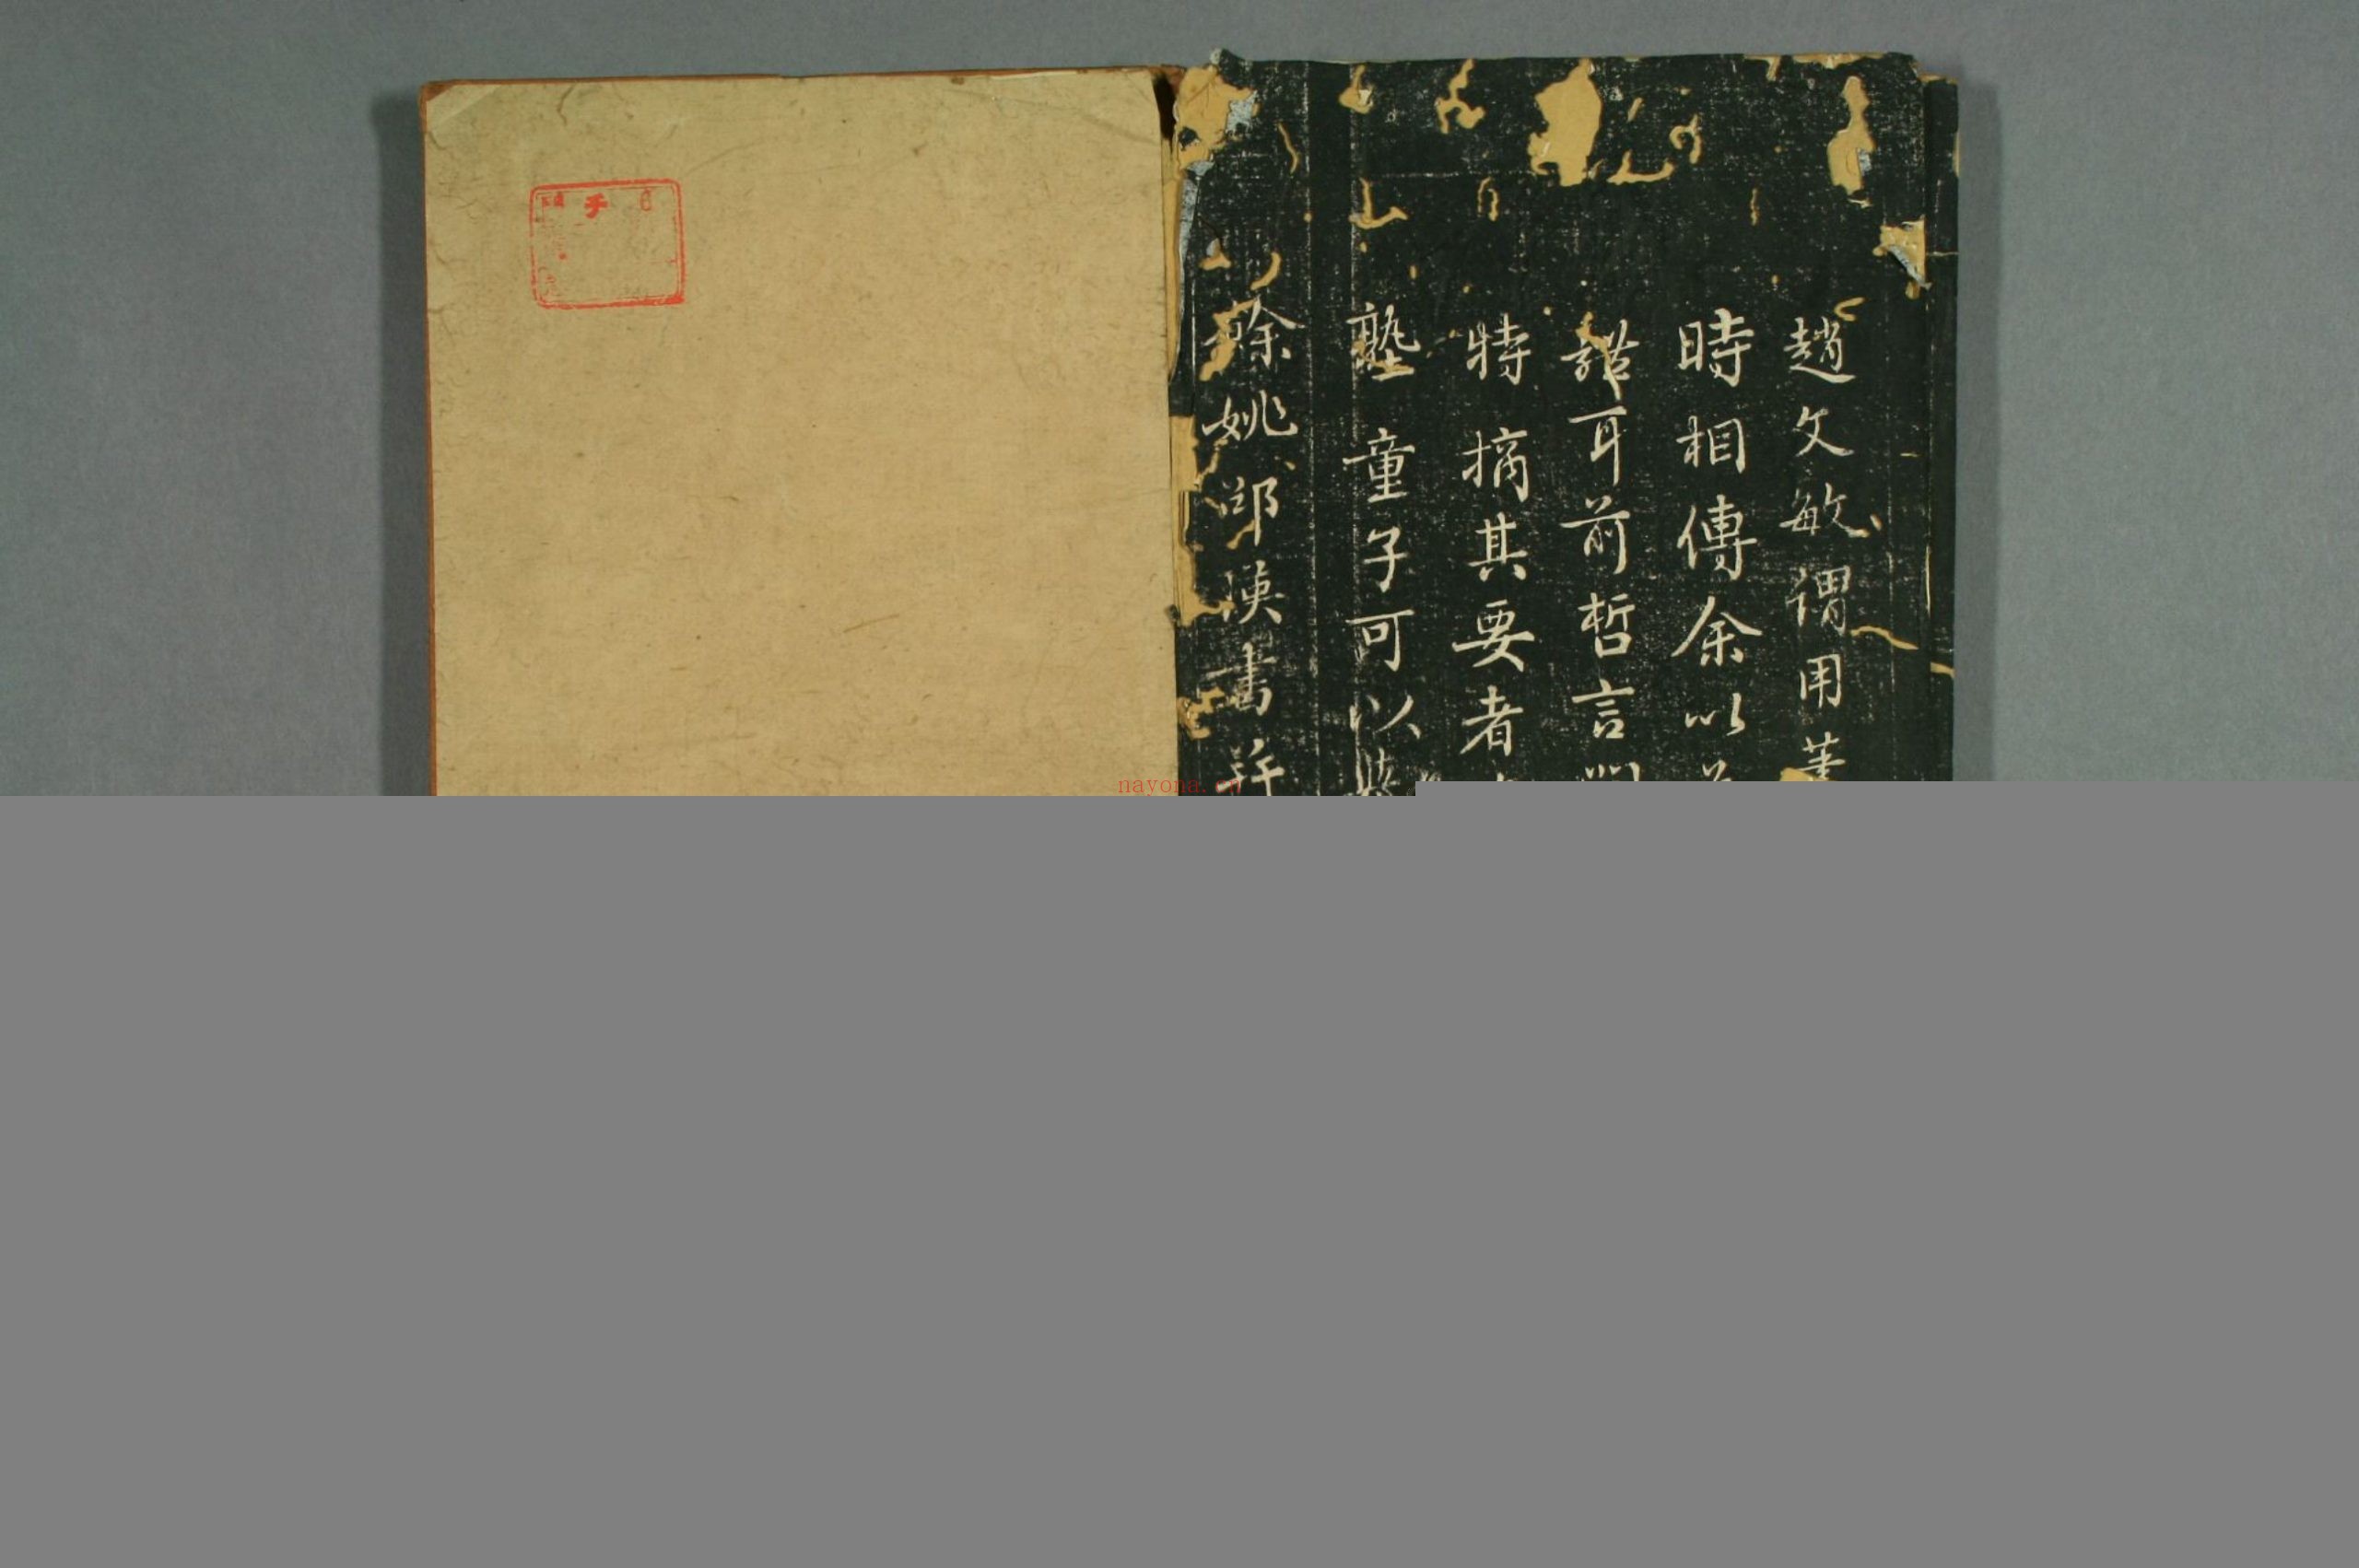 趙文敏謂用筆
時相傳余以
耳前哲言
特摘其要者
塾童子可以
餘姚邵瑛書并
nayona.cn